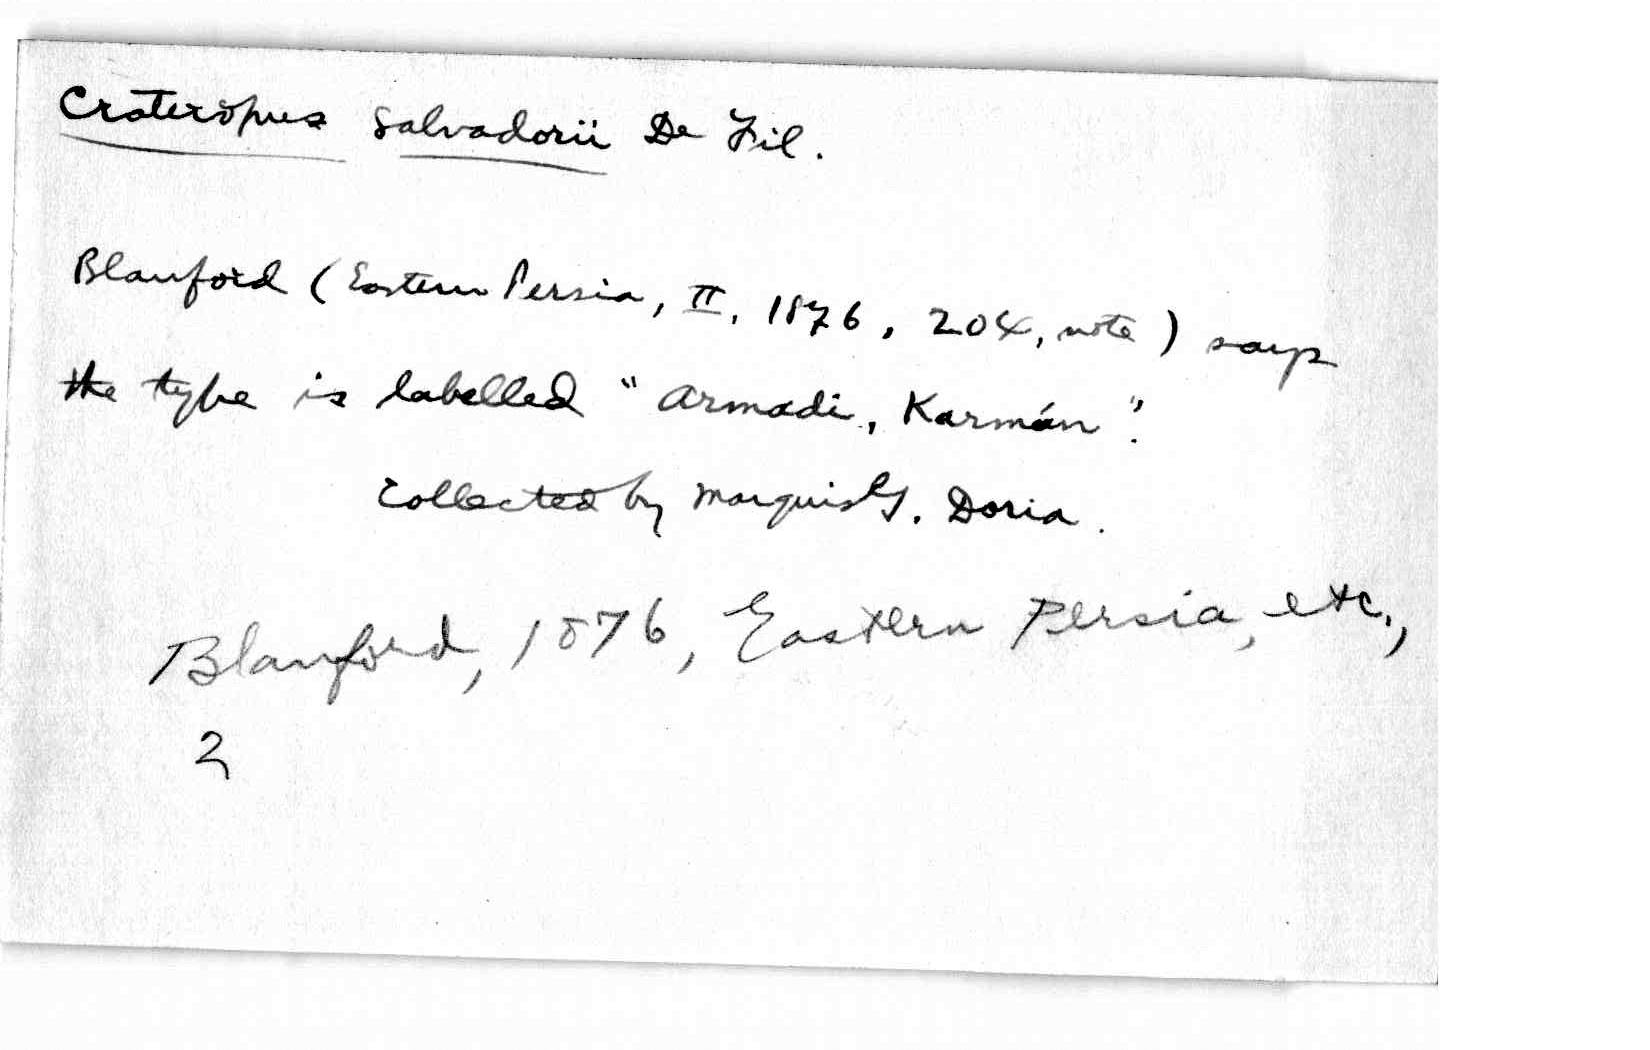 Crateropus Salvadorii De Fil.
Blanford (Eastern Persia, II, 1876, 204, note) says
the type is labelled "Armadi, Karmán".
Collected by Marquis G. Doria.
Blanford, 1876, Eastern Persia, etc.,
2